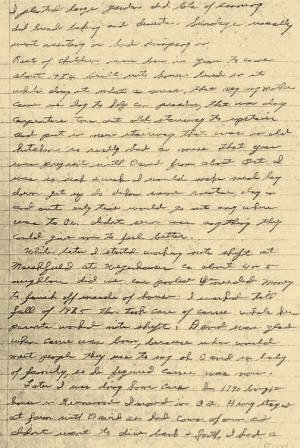 I planted large garden did lots of canning
did bread baking and sweets. Sundays usually
went visiting or had company in
Rest of children were born in years to come
about 1954 built onto house lived in it
while doing it what a mess, that my mother
came one day to help can, that was day
carpenters torn out old stairway to upstairs
and put in new stairway that was in old
kitchen so really had a mess that year
was pregnant with David from about Oct. I
was so sick & weak I would make meal lay
down get up do dishes same routine, day in
and out only time would go out any where
was to Dr. didn't seem was anything they
could give me to feel better.
While later I started working nite shift at
Marshfield at Weyerhaeuser Co about 4 or 5
neighbors did we car pooled I needed money
to finish off inside of house. I worked told
fall of 1985 then took care of Carrie while her
parents worked nite shift. David was glad
when Carrie was born, because when would
meet people they use to say oh is baby
of family, so he figured Carrie was now.
Later I was doing home care. In 1990 bought
house in Greenwood I moved in Oct. Henry stayed
at farm with David as had cows & farm and
didn't want to drive back & forth, I had a